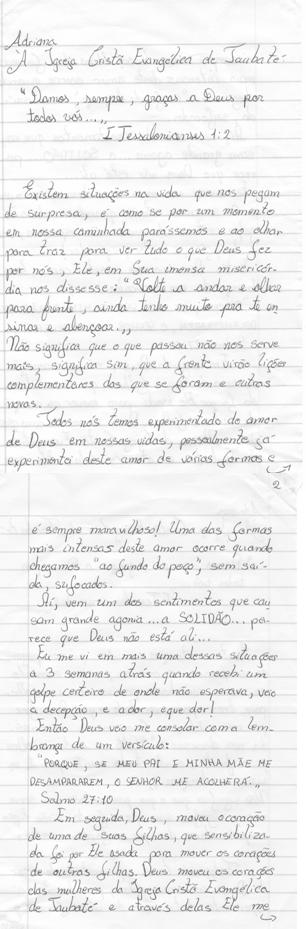 Adriana
À Igreja Cristã Evangélica de Taubaté:
"Damos, sempre, graças a Deus por
todos vós...,,
I Tessalonicenses 1:2
Existem situações na vida que nos pegam
de surpresa, é como se por um momento
em nossa caminhada parássemos e ao olhar
para traz para ver tudo o que Deus fez
por nós, Ele, em Sua imensa misericór-
dia nos dissesse: "Volte a andar e olhar
para frente, ainda tenho muito pra te en
sinar e abençoar.,,
Não significa que o que passou não nos serve
mais, significa sim, que a frente virão lições
complementares das que se foram e outras
novas...
Todos nós temos experimentado do amor
de Deus em nossas vidas, pessoalmente já
experimentei deste amor de várias formas e
2
é sempre maravilhoso! Uma das formas
mais intensas deste amor ocorre quando
chegamos "ao fundo do poço", sem saí-
da, sufocados.
Aí, vem um dos sentimentos que cau
sam grande agonia... a SOLIDÃO... pa-
rece que Deus não está ali...
Eu me vi em mais uma dessas situações
a 3 semanas atrás quando recebi um
golpe certeiro de onde não esperava, veio
a decepção, e a dor, e que dor!
Então Deus veio me consolar com a lem-
brança de um versículo:
"PORQUE, SE MEU PAI E MINHA MÃE ME
DESAMPARAREM, O SENHOR ME ACOLHERÁ.,,
Salmo 27:10
Em seguida, Deus, moveu o coração
de uma de suas filhas, que sensibiliza-
da foi por Ele usada para mover os corações
de outras filhas. Deus moveu os corações
das mulheres da Igreja Cristã Evangélica
de Taubaté e através delas Ele me